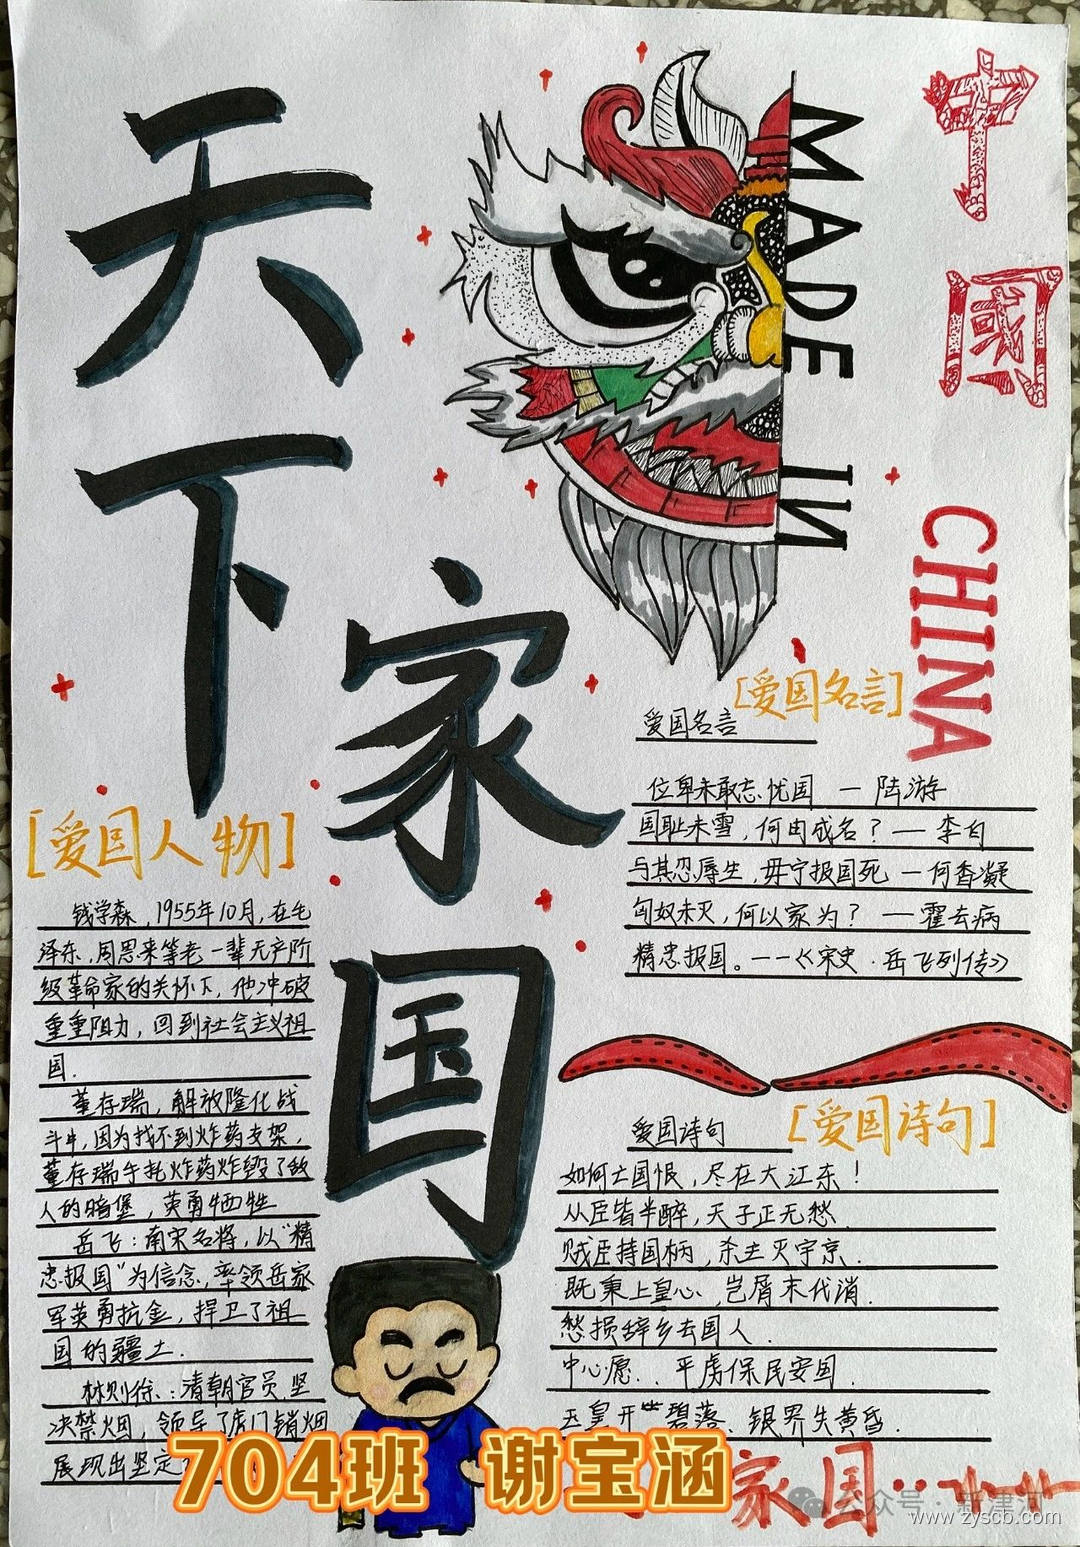 天下
家国
MADE IN
中國
CHINA
[爱国名言]
爱国名言
位卑未敢忘忧国 — 陆游
国耻未雪，何由成名？— 李白
与其忍辱生，毋宁报国死 — 何香凝
匈奴未灭，何以家为？ — 霍去病
精忠报国。--《宋史·岳飞列传》
[爱国人物]
钱学森，1955年10月，在毛
泽东，周恩来等老一辈无产阶
级革命家的关怀下，他冲破
重重阻力，回到社会主义祖
国.
董存瑞，解放隆化战
斗中，因为找不到炸药支架，
董存瑞手托炸药炸毁了敌
人的暗堡，英勇牺牲
岳飞：南宋名将，以"精
忠报国"为信念，率领岳家
军英勇抗金，捍卫了祖
国的疆土.
林则徐：清朝官员坚
决禁烟，领导了虎门销烟
展现出坚定
[爱国诗句]
爱国诗句
如何亡国恨，尽在大江东！
从臣皆半醉，天子正无愁.
贼臣持国柄，杀主灭宇京.
既秉上皇心，岂屑末代诮.
愁损辞乡去国人.
中心愿..平虏保民安国.
玉皇开碧落、银界失黄昏.
704班 谢宝涵
家国
公众号·新津河
www.zyscb.com